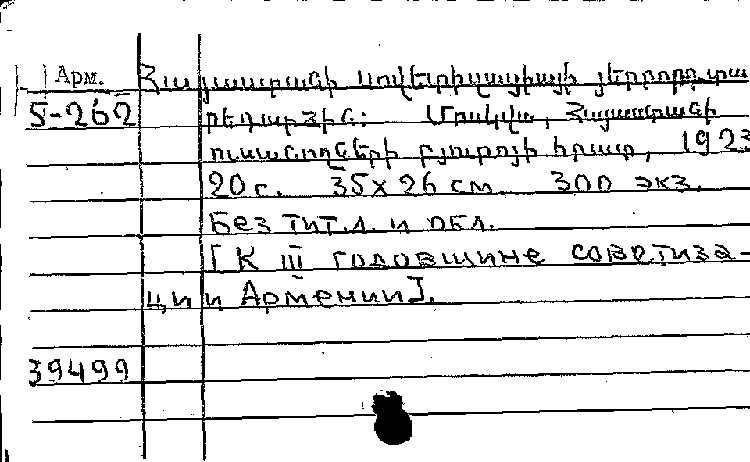 Арм. Հայաստանի սովետիզացիայի յերրորդ տա
5-262 րեդարձին: Մոսկվա, Հայաստանի
ուսանողների բյուրոյի հրատ, 1923
20 с. 35 x 26 см 300 экз.
Без тит.л. и обл.
[К III годовщине советиза-
ции Армении].
39499